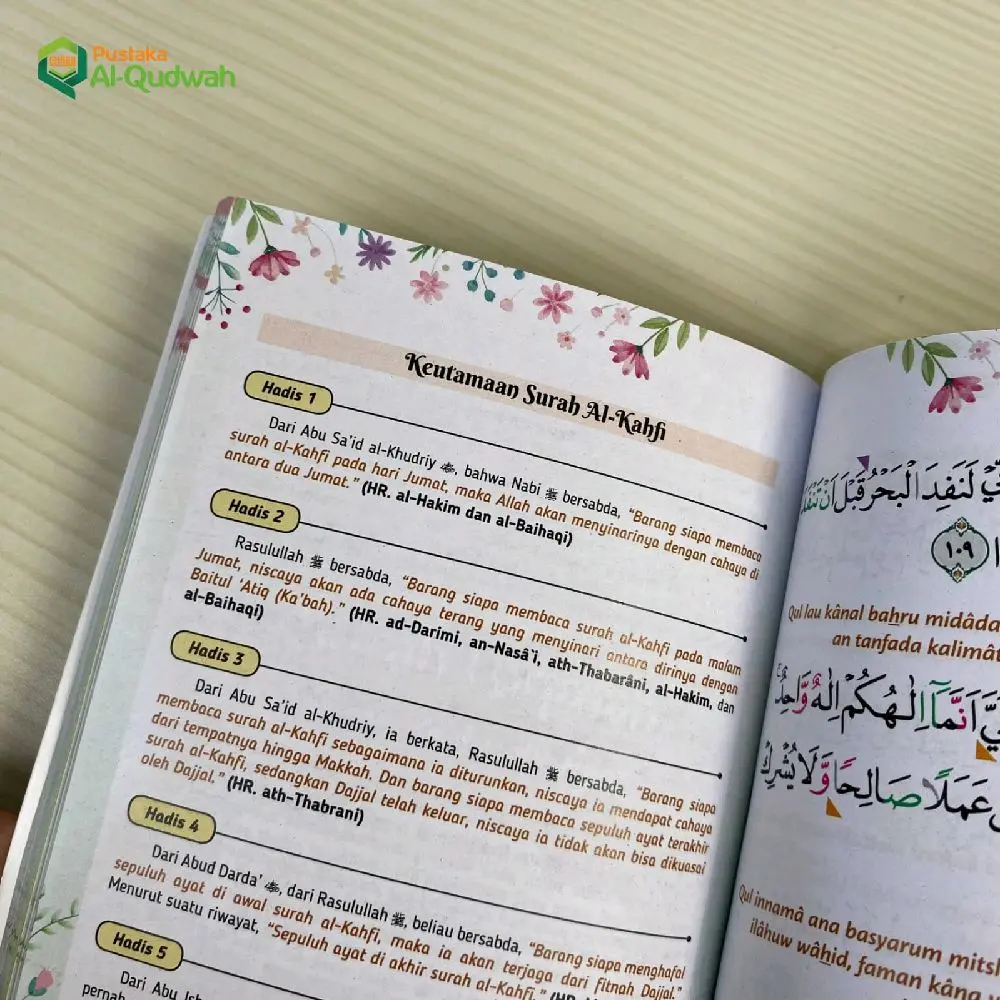 Pustaka
Al-Qudwah
Keutamaan Surah Al-Kahfi
Hadis 1
Dari Abu Sa'id al-Khudriy ؓ, bahwa Nabi ﷺ bersabda, "Barang siapa membaca
surah al-Kahfi pada hari Jumat, maka Allah akan menyinarinya dengan cahaya di
antara dua Jumat." (HR. al-Hakim dan al-Baihaqi)
Hadis 2
Rasulullah ﷺ bersabda, "Barang siapa membaca surah al-Kahfi pada malam
Jumat, niscaya akan ada cahaya terang yang menyinari antara dirinya dengan
Baitul 'Atiq (Ka'bah)." (HR. ad-Darimi, an-Nasâ'i, ath-Thabarâni, al-Hakim, dan
al-Baihaqi)
Hadis 3
Dari Abu Sa'id al-Khudriy, ia berkata, Rasulullah ﷺ bersabda, "Barang siapa
membaca surah al-Kahfi sebagaimana ia diturunkan, niscaya ia mendapat cahaya
dari tempatnya hingga Makkah. Dan barang siapa membaca sepuluh ayat terakhir
surah al-Kahfi, sedangkan Dajjal telah keluar, niscaya ia tidak akan bisa dikuasai
oleh Dajjal." (HR. ath-Thabrani)
Hadis 4
Dari Abud Darda' ؓ, dari Rasulullah ﷺ, beliau bersabda, "Barang siapa menghafal
sepuluh ayat di awal surah al-Kahfi, maka ia akan terjaga dari fitnah Dajjal."
Menurut suatu riwayat, "Sepuluh ayat di akhir surah al-Kahfi."
Hadis 5
Dari Abu
pernah
لَنَفِدَ الْبَحْرُ قَبْلَ اَنْ
١٠٩
Qul lau kânal bahru midâda
an tanfada kalimât
اَنَّمَآ اِلٰهُكُمْ اِلٰهٌ وَّاحِدٌ
عَمَلًا صَالِحًا وَّلَا يُشْرِكْ
Qul innamâ ana basyarum
ilâhuw wâhid, faman kâna